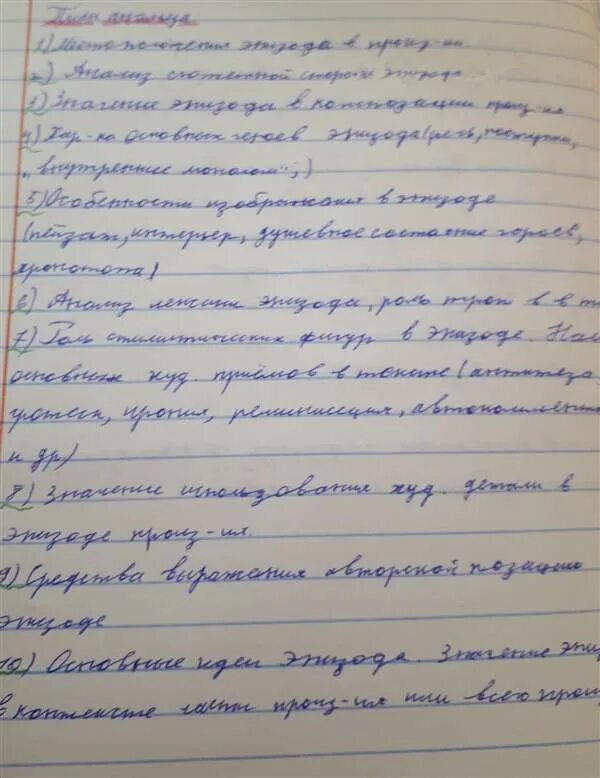 План анализа
1) Местоположения эпизода в произ-ии.
2) Анализ сюжетной стороны эпизода
3) Значение эпизода в композиции произ-ия
4) Хар-ка основных героев эпизода (речь, поступки,
„внутреннее монолог";)
5) Особенности изображения в эпизоде
(пейзаж, интерьер, душевное состояние героев,
хронотопа)
6) Анализ лексики эпизода, роль троп в в т
7) Роль стилистических фигур в эпизоде.
основных худ. приёмов в тексте (антитеза
гротеск, ирония, реминисция,
и др)
8) Значение использования худ. детали в
эпизоде произ-ия.
9) Средства выражения авторской позации
эпизоде
10) Основные идеи эпизода. Значение эпиз
в контексте части произ-ия или всего произ